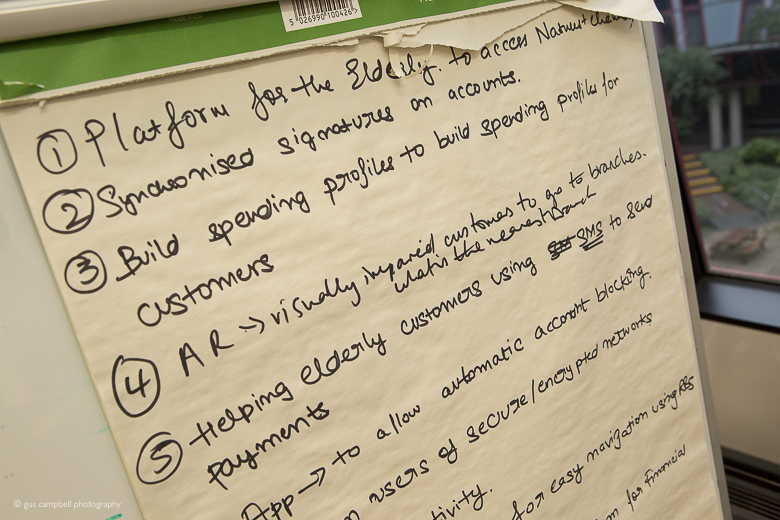 5 026990 100426 >
① Platform for the Elderly. to access Natwest
② Synchronised signatures on accounts.
③ Build spending profiles to build spending profiles for
customers
④ AR → visually impaired customers to go to branches.
what is the nearest branch
⑤ Helping elderly customers using SMS to send
payments
App → to allow automatic account blocking.
users of secure/encrypted networks
for easy navigation using RBS
for financial
© gus campbell photography